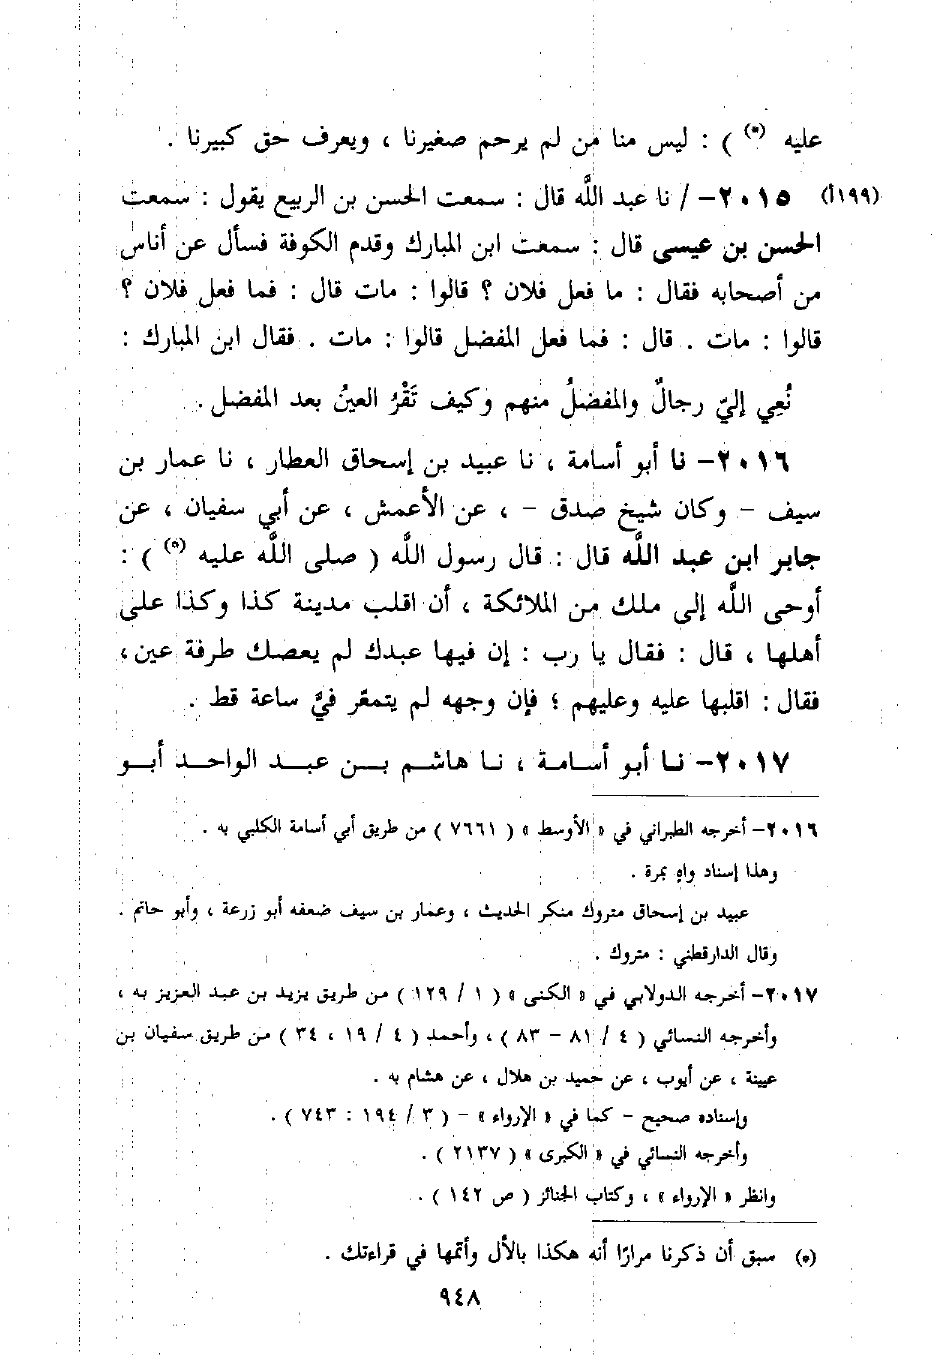 عليه (*) ) : ليس منا من لم يرحم صغيرنا ، ويعرف حق كبيرنا .
(١٩٩أ) ٢٠١٥- / نا عبد الله قال : سمعت الحسن بن الربيع يقول : سمعت
الحسن بن عيسى قال : سمعت ابن المبارك وقدم الكوفة فسأل عن أناس
من أصحابه فقال : ما فعل فلان ؟ قالوا : مات قال : فما فعل فلان ؟
قالوا : مات . قال : فما فعل المفضل قالوا : مات . فقال ابن المبارك :
نُعِي إليّ رجالٌ والمفضلُ منهم وكيف تَقْرُ العينُ بعد المفضل .
٢٠١٦- نا أبو أسامة ، نا عبيد بن إسحاق العطار ، نا عمار بن
سيف - وكان شيخ صدق - ، عن الأعمش ، عن أبي سفيان ، عن
جابر ابن عبد الله قال : قال رسول الله ( صلى الله عليه (*) ) :
أوحى الله إلى ملك من الملائكة ، أن اقلب مدينة كذا وكذا على
أهلها ، قال : فقال يا رب : إن فيها عبدك لم يعصك طرفة عين،
فقال : اقلبها عليه وعليهم ؛ فإن وجهه لم يتمعّر فيَّ ساعة قط .
٢٠١٧- نا أبو أسامة ، نا هاشم بن عبد الواحد أبو
٢٠١٦- أخرجه الطبراني في « الأوسط » ( ٧٦٦١ ) من طريق أبي أسامة الكلبي به .
وهذا إسناد واهٍ بمرة .
عبيد بن إسحاق متروك منكر الحديث ، وعمار بن سيف ضعفه أبو زرعة ، وأبو حاتم .
وقال الدارقطني : متروك .
٢٠١٧- أخرجه الدولابي في « الكنى » ( ١ / ١٢٩ ) من طريق يزيد بن عبد العزيز به ،
وأخرجه النسائي ( ٤ / ٨١ - ٨٣ ) ، وأحمد ( ٤ / ١٩ ، ٣٤ ) من طريق سفيان بن
عيينة ، عن أيوب ، عن حميد بن هلال ، عن هشام به .
وإسناده صحيح - كما في « الإرواء » - ( ٣ / ١٩٤ : ٧٤٣ ) .
وأخرجه النسائي في « الكبرى » ( ٢١٣٧ ) .
وانظر « الإرواء » ، وكتاب الجنائز ( ص ١٤٢ ) .
(*) سبق أن ذكرنا مرارًا أنه هكذا بالأل وأتمها في قراءتك .
٩٤٨